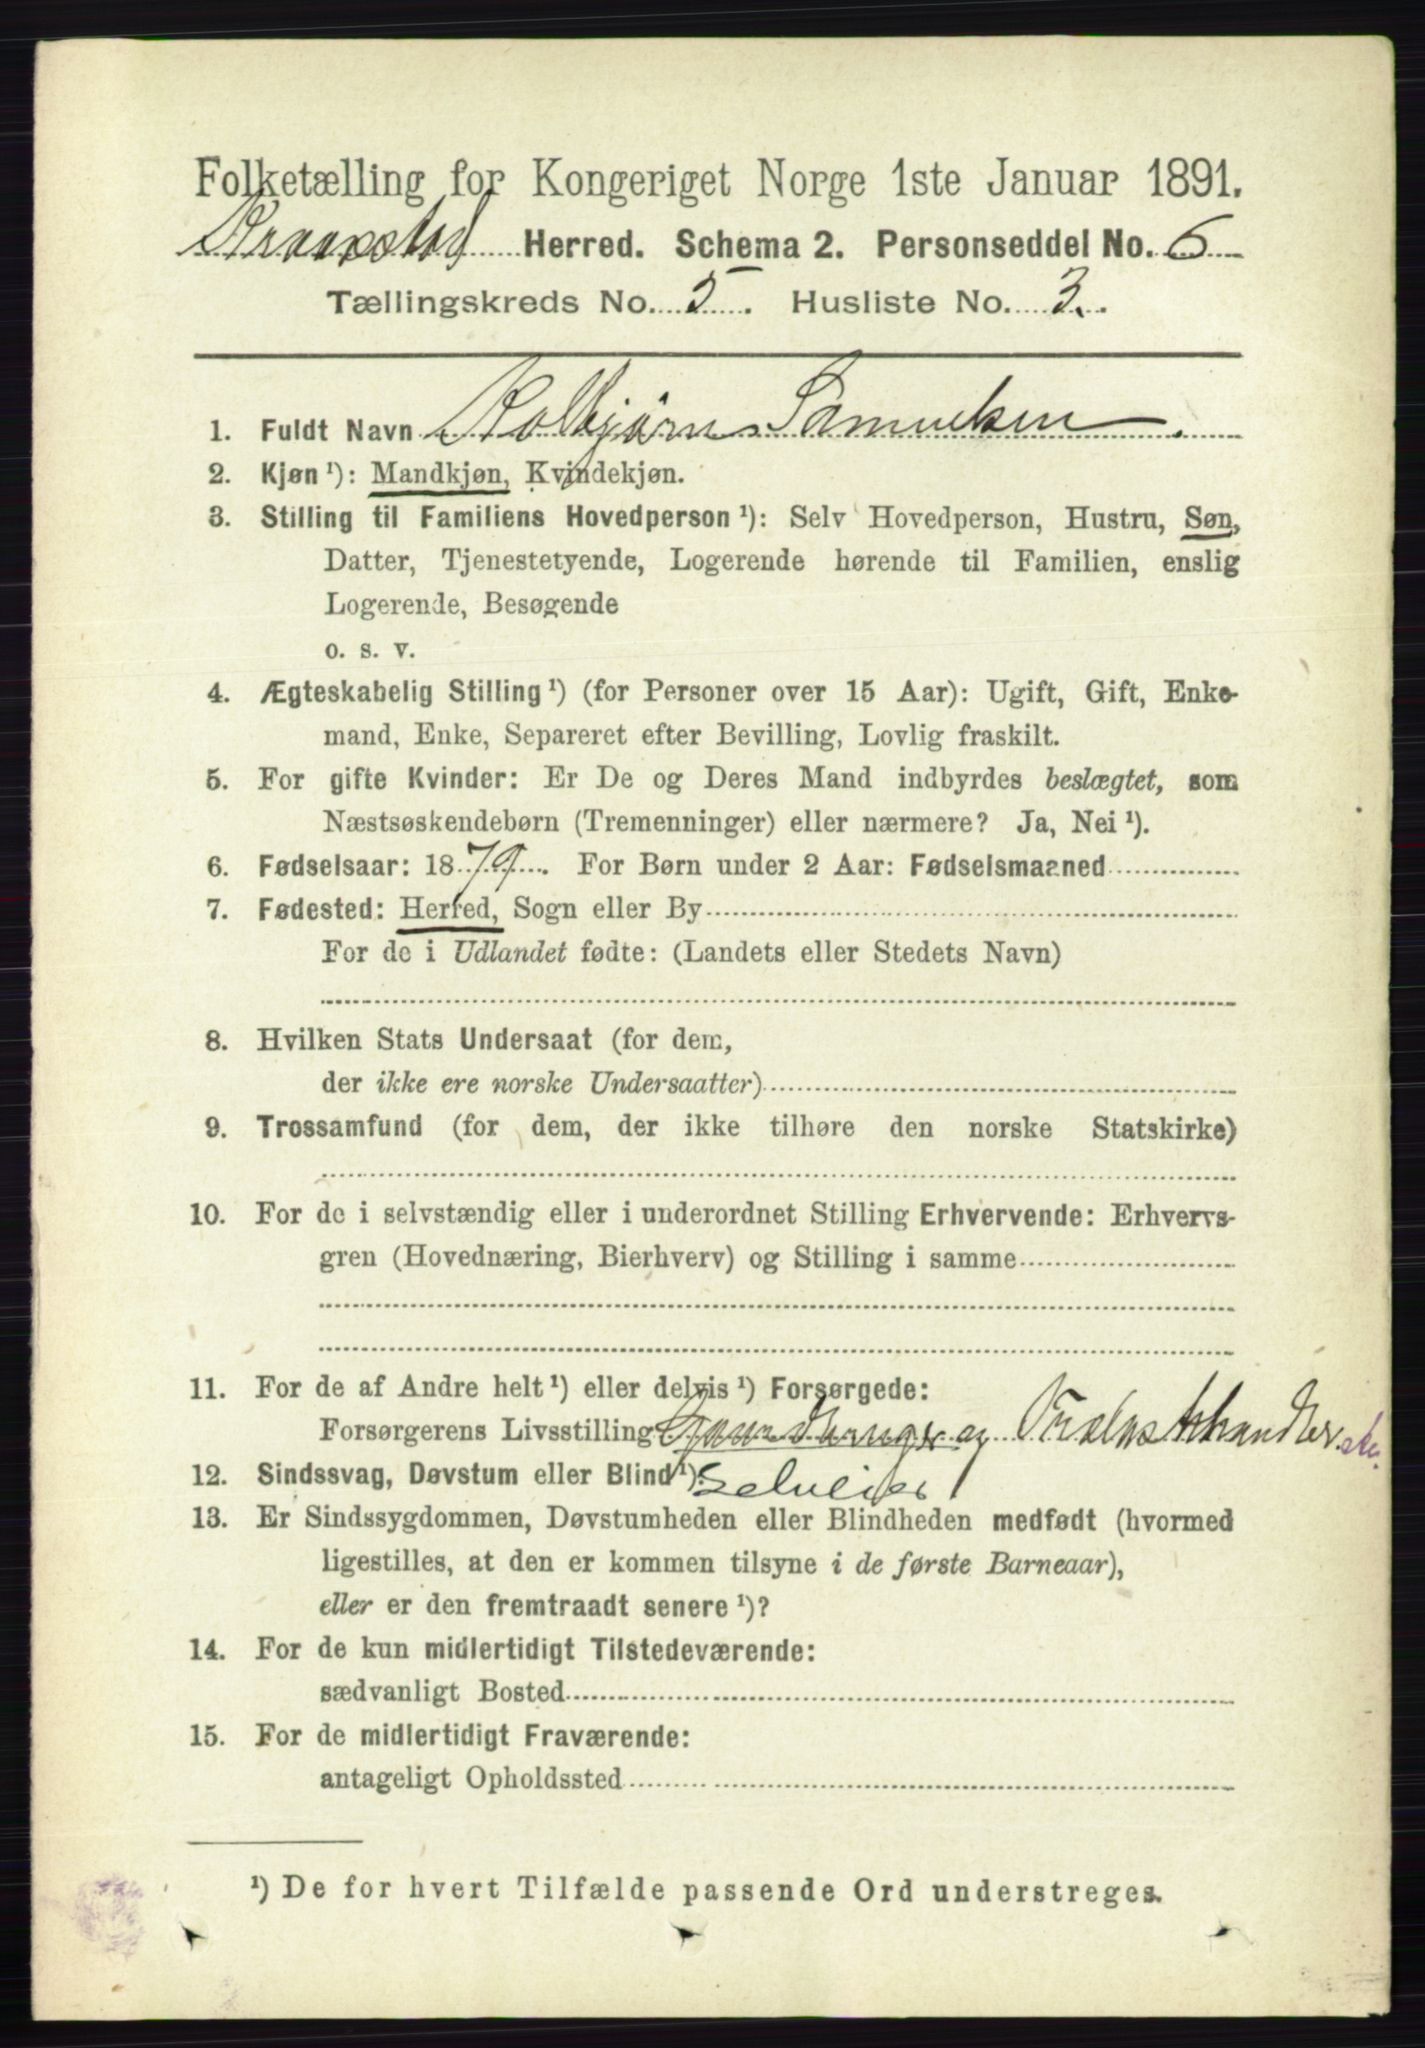 Folketælling for Kongeriget Norge 1ste Januar 1891.
Kraakstad Herred. Schema 2. Personseddel No. 6
Tællingskreds No. 5. Husliste No. 3.
1. Fuldt Navn Kolbjørn Samuelsen.
2. Kjøn ¹): Mandkjøn, Kvindekjøn.
3. Stilling til Familiens Hovedperson ¹): Selv Hovedperson, Hustru, Søn,
Datter, Tjenestetyende, Logerende hørende til Familien, enslig
Logerende, Besøgende
o. s. v.
4. Ægteskabelig Stilling ¹) (for Personer over 15 Aar): Ugift, Gift, Enke-
mand, Enke, Separeret efter Bevilling, Lovlig fraskilt.
5. For gifte Kvinder: Er De og Deres Mand indbyrdes beslægtet, som
Næstsøskendebørn (Tremenninger) eller nærmere? Ja, Nei ¹).
6. Fødselsaar: 1879. For Børn under 2 Aar: Fødselsmaaned
7. Fødested: Herred, Sogn eller By
For de i Udlandet fødte: (Landets eller Stedets Navn)
8. Hvilken Stats Undersaat (for dem,
der ikke ere norske Undersaatter)
9. Trossamfund (for dem, der ikke tilhøre den norske Statskirke)
10. For de i selvstændig eller i underordnet Stilling Erhvervende: Erhvervs-
gren (Hovednæring, Bierhverv) og Stilling i samme
11. For de af Andre helt ¹) eller delvis ¹) Forsørgede:
Forsørgerens Livsstilling Gaardbruger og Trælasthandler
12. Sindssvag, Døvstum eller Blind ¹). Selveier
13. Er Sindssygdommen, Døvstumheden eller Blindheden medfødt (hvormed
ligestilles, at den er kommen tilsyne i de første Barneaar),
eller er den fremtraadt senere ¹)?
14. For de kun midlertidigt Tilstedeværende:
sædvanligt Bosted
15. For de midlertidigt Fraværende:
antageligt Opholdssted
¹) De for hvert Tilfælde passende Ord understreges.